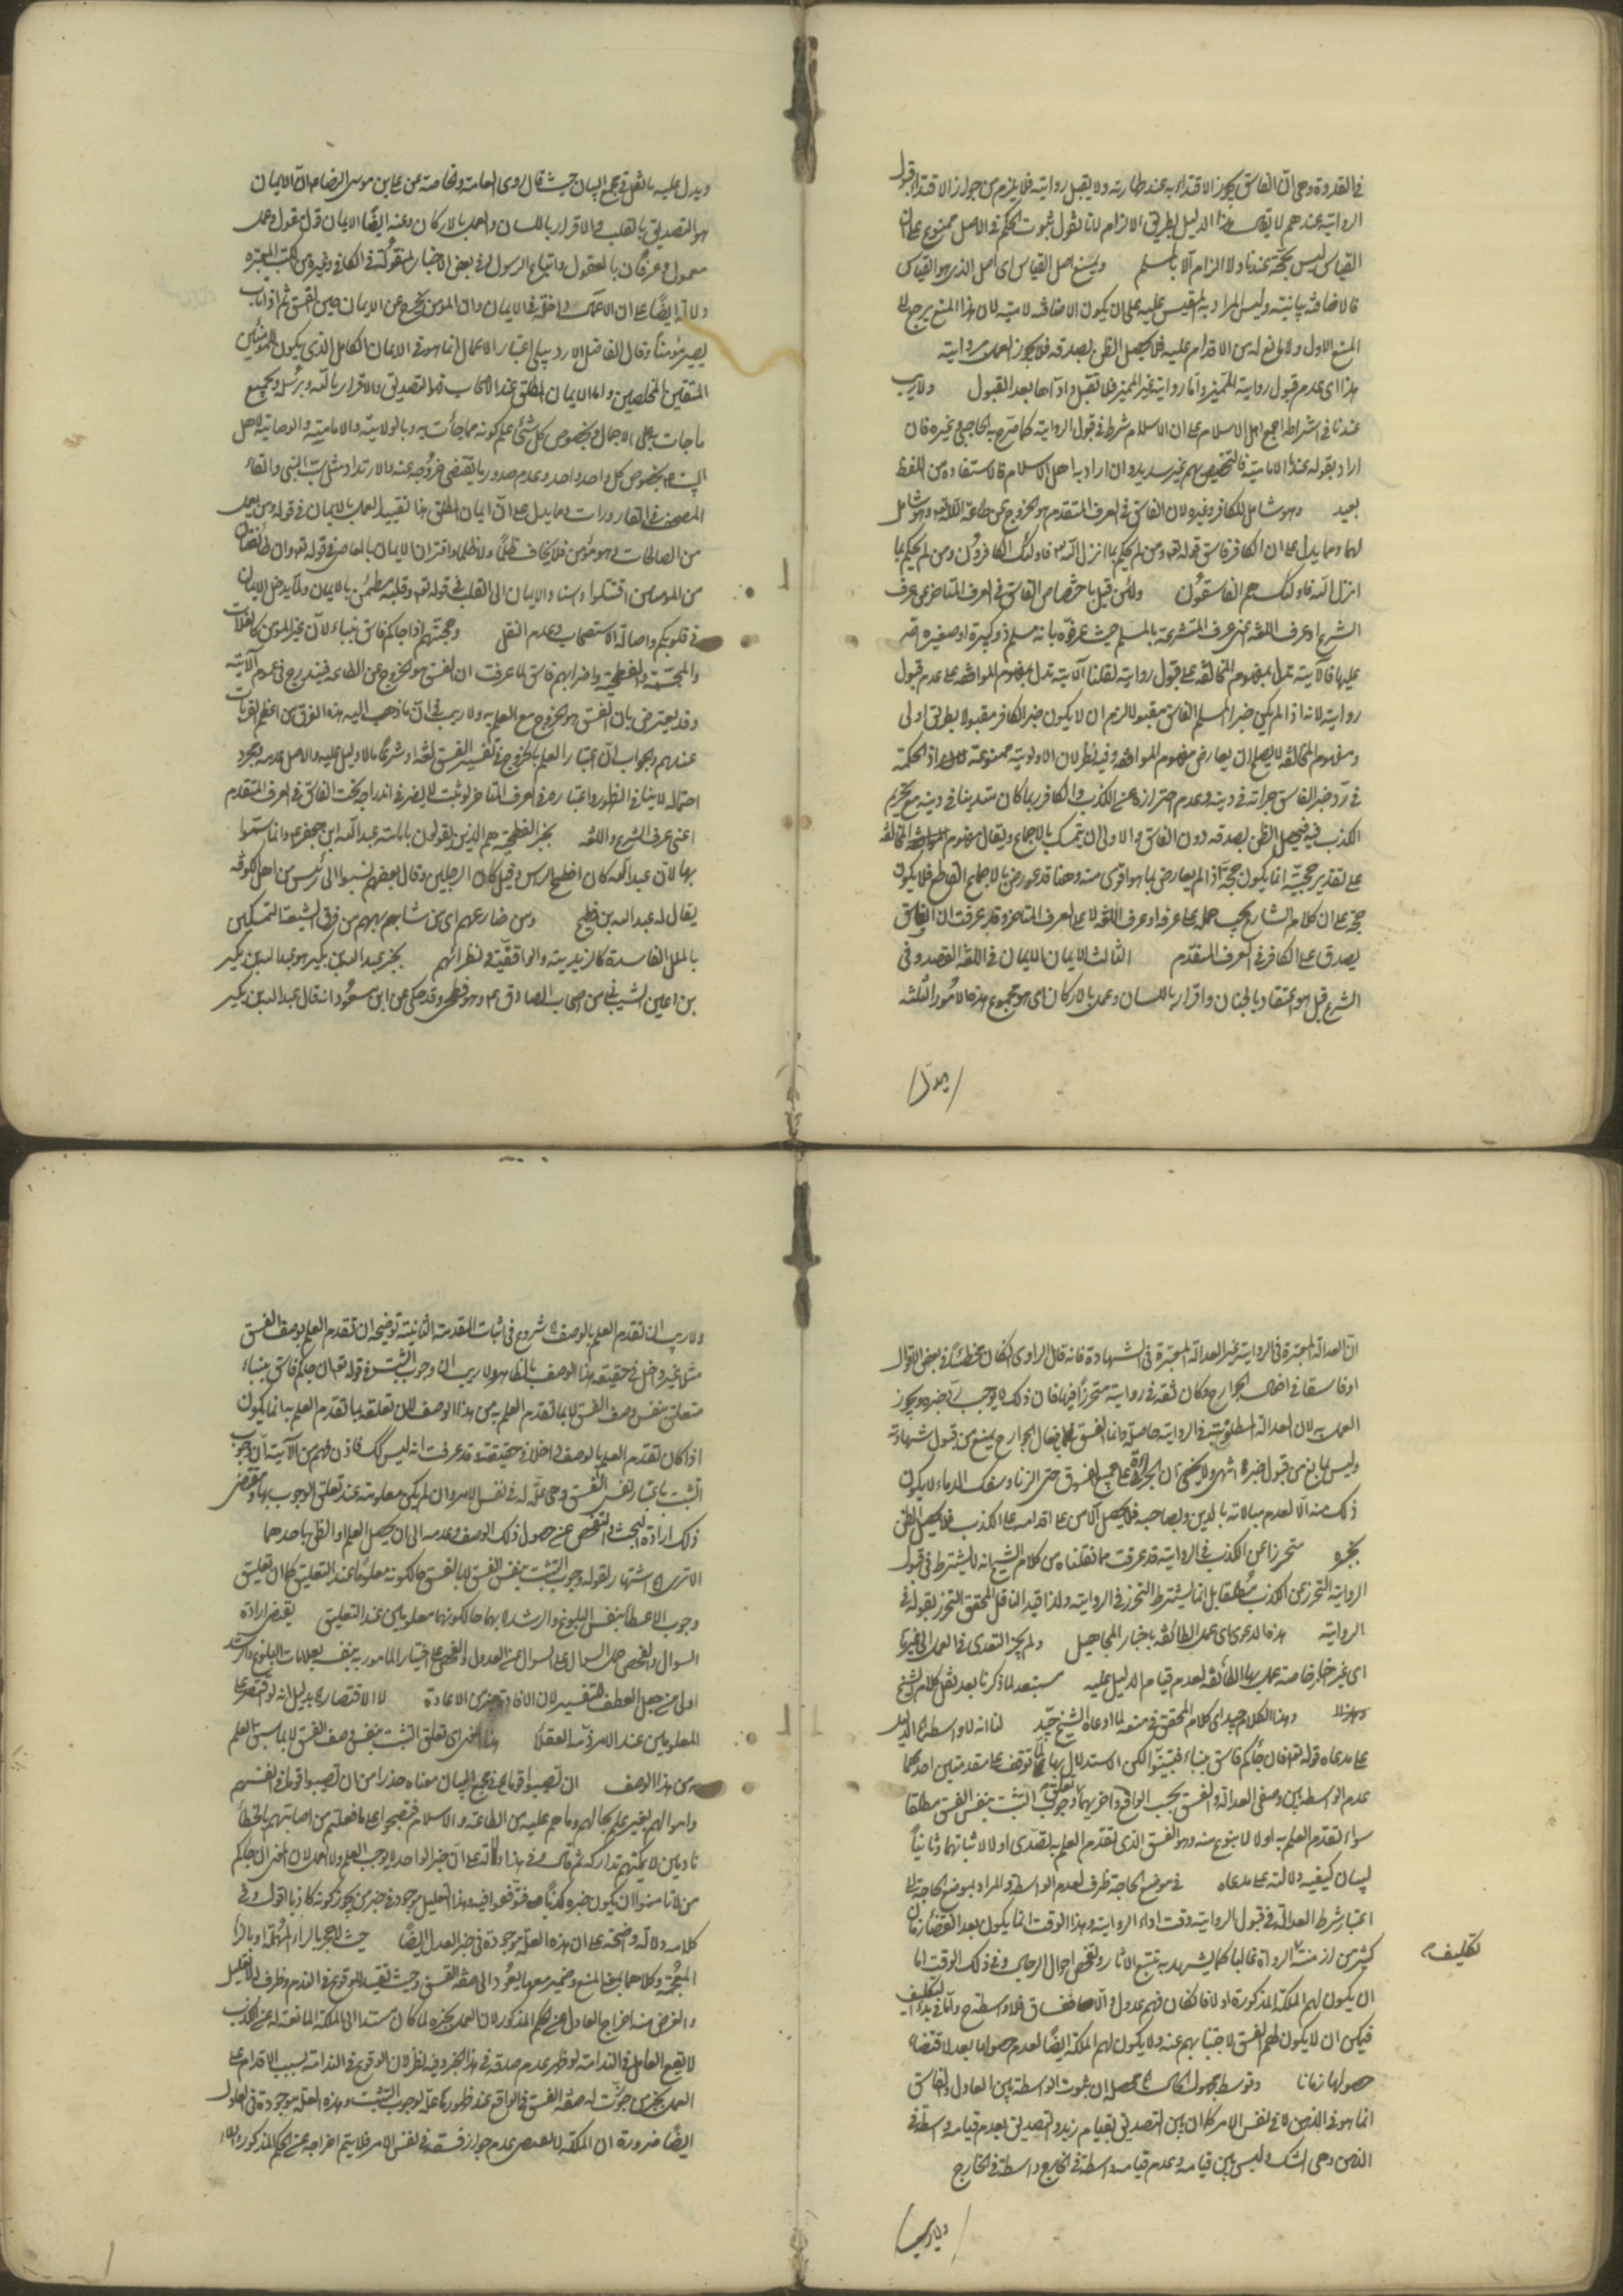 في القدوة وهي انّ الفاسق يجوز الاقتداء به عند طهارته ولا يقبل روايته فلا يلزم من جواز الاقتداء قبول
الرواية عندهم لا يقال هذا الدليل بطريق الالزام لانا نقول ثبوت الحكم في الاصل ممنوع على ان
القياس ليس بحجّة عندنا ولا الزام الّا بالمسلّم ويمنع اصل القياس اى اصل الذى هو القياس
فالاضافة بيانيّة وليس المراد به المقيس عليه على ان يكون الاضافة لاميّة لان هذا المنع يرجع الى
المنع الاول ولا مانع له من الاقدام عليه فلا يحصل الظن بصدقه فلا يجوز العمل بروايته
هذا اى عدم قبول رواية المميّز وامّا رواية غير المميز فلا تقبل واداها بعد القبول ولا ريب
عندنا في اشراطه اجمع اهل الاسلام على ان الاسلام شرط في قبول الرواية كما صرّح به الحاجبى وغيره فان
اراد بقوله عندنا الامامية فالتخصيص بهم غير سديد وان اراد به اهل الاسلام فالاستفادة من اللفظ
بعيد وهو شامل للكافر وغيره لان الفاسق في العرف المتقدم هو الخروج عن طاعة اللّه تعالى وهو شامل
لهما ومما يدل على ان الكافر فاسق قوله تعالى ومن لم يحكم بما انزل اللّه فاولئك هم الكافرون ومن لم يحكم بما
انزل اللّه فاولئك هم الفاسقُون ولئن قيل باختصاص الفاسق في العرف المتأخر عن عرف
الشرع او عرف اللغة اعنى عرف المتشرعة بالمسلم حيث عرفوه بانه مسلم ذو كبيرة او صغيرة اصر
عليها فالآية تدل بمفهوم المخالفة على قبول روايته لقلنا الآية تدل بمفهوم الموافقة على عدم قبول
روايته لانه اذا لم يكن خبر المسلم الفاسق مقبولا لزم ان لا يكون خبر الكافر مقبولا بطريق اولى
ومفهوم المخالفة لا يصلح ان يعارض مفهوم الموافقة وفيه نظر لان الاولوية ممنوعة اذ الحكمة
في ردّ خبر الفاسق جراته في دينه وعدم احترازه عن الكذب والكافر ربما كان متدينا في دينه مع تحريم
الكذب فيه فيحصل الظن بصدقه دون الفاسق والاولى ان يتمسك بالاجماع ويقال مفهوم المخالفة
على تقدير حجيته انما يكون حجّة اذا لم يعارض بما هو اقوى منه وهنا قد عورض بالاجماع القاطع فلا يكون
حجّة على ان كلام الشارع يجب حمله على عرفه او عرف اللغة لا على العرف المتاخر وقد عرفت ان الفاسق
يصدق على الكافر في العرف المتقدم الثالث الايمان الايمان في اللغة التصديق وفى
الشرع قيل هو اعتقاد بالجنان واقرار باللسان وعمل بالاركان اى هو مجموع هذه الامُور الثلثة
ويدل
ويدل عليه ما نقل في مجمع البيان حيث قال روى العامة والخاصة عن على بن موسى الرضا ع انّ الايمان
هو التصديق بالقلب والاقرار باللسان والعمل بالاركان وعنه ايضًا الايمان قول مقول وعمل
معمول وعرفان بالعقول واتباع الرسول وفى بعض الاخبار المنقولة في الكافى وغيره من الكتب المعتبرة
دلالة ايضًا على ان الاعمال داخلة في الايمان وان المؤمن يخرج عن الايمان حين الفسق ثم اذا تاب
يصير مؤمنًا وقال الفاضل الاردبيلى اعتبار الاعمال انما هو في الايمان الكامل الذى يكون للمؤمنين
المتقين المخلصين واما الايمان المطلق عند الاصحاب فهو التصديق والاقرار باللّه وبرسُله وبجميع
ما جاءت به على الاجمال وبخصوص كل شئ علم كونه مما جاءت به وبالولاية والامامة والوصاية لاهل
البيت ع بخصوص كل واحد واحد وعدم صدور ما يقتضى خروجه عنه والارتداد مثل سبّ النبى والقاء
المصحف في القاذورات ومما يدل على انّ ايمان المطلق هذا تقييد العمل بالايمان في قوله ومن يعمل
من الصالحات وهو مؤمن فلا يخاف ظلمًا ولا هضما واقتران الايمان بالمعاصى في قوله تعالى وان طائفتان
من المؤمنين اقتتلوا واسناد الايمان الى القلب في قوله تعالى وقلبه مطمئن بالايمان ولمّا يدخل الايمان
في قلوبكم واصالة الاستصحاب وعدم النقل وحجتهم اذا جاءكم فاسق بنباء لانّ غير المومن كالغلات
والمجسّمة والفطحية واضرابهم فاسق لما عرفت ان الفسق هو الخروج عن الطاعه فيندرج في عموم الآية
وقد يعترض بان الفسق هو الخروج مع العلم به ولا ريب في انّ ما ذهب اليه هذه الفرق من اعظم القربات
عندهم والجواب ان اعتبار العلم بالخروج في تفسير الفسق لغة او شرعًا مما لا دليل عليه والاصل عدمه ومجرد
احتماله لا ينافى الظهور واعتباره في العرف المتاخر لو ثبت لا يضر في اندراجه تحت الفاسق في العرف المتقدم
اعنى عرف الشرع واللغة بخبر الفطحية هم الذين يقولون بامامة عبد اللّه ابن جعفر ع وانما سمّوا
بها لانّ عبد اللّه كان افطح الراس وقيل كان افطح الرجلين وقال بعضهم نسبوا الى رئيس من اهل الكوفة
يقال له عبد اللّه بن فطيح ومن ضارعهم اى من شابههم من فرق الشيعة المتمسكين
بالملل الفاسدة كالزيدية والواقفيّة ونظرائهم بخبر عبد اللّه بن بكير هو عبد اللّه بن بكير
بن اعين الشيبانى من اصحاب الصادق ع وهو فطحى وقد حكى عن ابن مسعُود انه قال عبد اللّه بن بكير
انّ العدالة المعتبرة في الرواية غير العدالة المعتبرة في الشهادة فانه قال الراوى ان كان مخطئًا في بعض الاقوال
او فاسقا في افعال الجوارح وكان ثقة في روايته متحرزًا فيها فان ذلك لا يوجب ردّ خبره ويجوز
العمل به لان العدالة المطلوبة في الرواية حاصلة وانما الفسق بافعال الجوارح يمنع من قبول شهادته
وليس بمانع من قبول خبره انتهى ولا يخفى ان الجراة على جميع الفسوق حتى الزنا وسفك الدماء لا يكون
ذلك منه الّا لعدم مبالاته بالدين وصاحبه فلا يحصل الامن على اقدامه على الكذب فلا يحصل الظن
بخبره متحرزا عن الكذب في الرواية قد عرفت مما نقلناه من كلام الشيخ انه لا يشترط في قبول
الرواية التحرز عن الكذب مُطلقا بل انما يشترط التحرز في الرواية ولذا قيد الناقل المحقق التحرز بقوله في
الرواية هذه الدعوى اى عمل الطائفة باخبار المجاهيل ولم يجز التعدى في العمل الى غيرها
اى غير اخبار خاصة عمل بها الطائفة لعدم قيام الدليل عليه مستبعد لما ذكرنا بعد نقل كلام الشيخ
وهذا الكلام جيد اى كلام المحقق في منعه لما ادعاه الشيخ جيّد لنا انه لا واسطة الدليل
على مدعاه قوله تعالى فان جاءكم فاسق بنباء فتبيّنوا لكن الاستدلال بها لما توقف على مقدمتين احدهما
عدم الواسطة بين وصفى العدالة والفسق بحسب الواقع واخريهما تعلّق وجوب التثبت بنفس الفسق مطلقا
سواء تقدم العلم به او لا لا بنوع منه وهو الفسق الذى تقدم العلم به تصدّى اولا لاثباتهما وثانيًا
لبيان كيفية دلالته على مدعاه في موضع الحاجة ظرف لعدم الواسطة والمراد بموضع الحاجة الى
اعتبار شرط العدالة في قبول الرواية وقت اداء الرواية وهذا الوقت انما يكون بعد انقضاء زمان
كثير من ازمنة الرواة غالبا كما يشهد به تتبع الاثار وتفحص احوال الرجال وفى ذلك الوقت اما
تكليف
ان يكون لهم الملكة المذكورة او لا فان كان فهم عدول والّا ففساق فلا واسطة ح وامّا في بدء التكليف
فيمكن ان لا يكون لهم الفسق لاجتنابهم عنه ولا يكون لهم الملكة ايضًا لعدم حصولها بعد لاقتضاء
حصولها زمانا وتوسط مجهول الحال محصله ان ثبوت الواسطة بين العادل والفاسق
انما هو في الذهن لا في نفس الامر كما ان بين التصديق بقيام زيد والتصديق بعدم قيامه واسطة في
الذهن وهى الشك وليس بين قيامه وعدم قيامه واسطة في الخارج
ولا ريب
ولا ريب ان تقدم العلم بالوصف شروع في اثبات المقدمة الثانية توضيحه ان تقدم العلم بوصف الفسق
مثلا غير داخل في حقيقة هذا الوصف بالظاهر ولا ريب ان وجوب التثبت في قوله تعالى ان جاءكم فاسق بنباء
متعلق بنفس وصف الفسق لا بما تقدم العلم به من هذا الوصف لان تعلقه بما تقدم العلم به انما يكون
اذا كان تقدّم العلم بالوصف داخلا في حقيقته وقد عرفت انه ليس كذلك فاذن فهم من الآية انّ وجوب
التثبت باعتبار نفس الفسق وهى علّة له في نفس الامر وان لم يكن معلومة عند تعلق الوجوب بها ومقتضى
ذلك ارادة البحث والتفحص عن حصول ذلك الوصف وعدمه الى ان يحصل العلم او الظن باحدهما
الا ترى اشتهار لقوله وجوب التثبت بنفس الفسق لا بالفسق حالكونه معلومًا عند التعليق كما ان تعليق
وجوب الاعطاء بنفس البلوغ والرشد لا بهما حالكونهما معلومين عند التعليق يقتضى ارادة
السوال والفحص حمل السوال على السوال عن العدول والفحص على اختيار المامور به بنفسه بعلامات البلوغ والرشد
اولى من جعل العطف للتفسير لان الافادة خير من الاعادة لا الاقتصار بدليل انه لو اقتصر على
المعلومين عند الامر ذمّه العقلاء هذا المعنى اى تعلق التثبت بنفس وصف الفسق لا بما سبق العلم
به من هذا الوصف ان تصيبوا قوما في مجمع البيان معناه حذرا من ان تصيبوا قوما في انفسهم
واموالهم بغير علم بحالهم وما هم عليه من الطاعة والاسلام فتصبحوا على ما فعلتم من اصابتهم بالخطأ
نادمين لا يمكنكم تداركه ثم قال وفى هذا دلالة على انّ خبر الواحد لا يوجب العلم ولا العمل لان المعنى ان جاءكم
من لا تامنوا ان يكون خبره كذبًا فتوقفوا فيه وهذا التعليل موجود في خبر من يجوز كونه كاذبا اقول وفى
كلامه دلالة واضحة على ان هذه العلّة موجودة في خبر العدل ايضًا حيث الحجر بالراء المُهملة او بالزاء
المعجمة وكلاهما بمعنى المنع وضمير معها يعُود الى صفة الفسق وحيث تقييد للوقوع في الندم وظرف للتعليل
والغرض منه اخراج العادل عن الحكم المذكور لان العمل بخبره لما كان مستندا الى الملكة المانعة له عن الكذب
لا يقع العامل في الندامة لو ظهر عدم صدقه في هذا الخبر وفيه نظر لان الوقوع في الندامة بسبب الاقدام على
العمل بخبر من جوّزت له صفة الفسق في الواقع عند ظهورها علّة لوجوب التثبت وهذه العلة موجودة في العادل
ايضًا ضرورة ان الملكة لا يقتضى عدم جواز فسقه في نفس الامر فلا يتم اخراجه عن الحكم المذكور